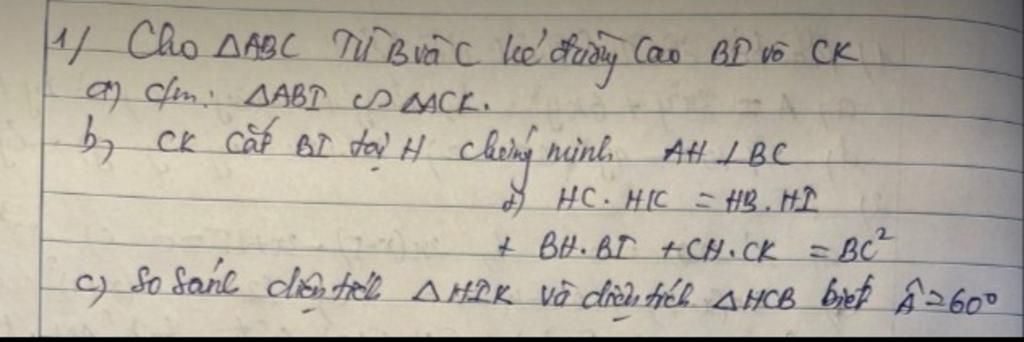 1/ Cho ΔABC Từ B và C kẻ đường cao BI và CK
a) c/m: ΔABI ∽ ΔACK.
b) CK cắt BI tại H chứng minh AH ⊥ BC
+) HC. HK = HB. HI
+ BH. BI + CH. CK = BC²
c) So sánh diện tích ΔHIK và diện tích ΔHCB biết Â = 60°